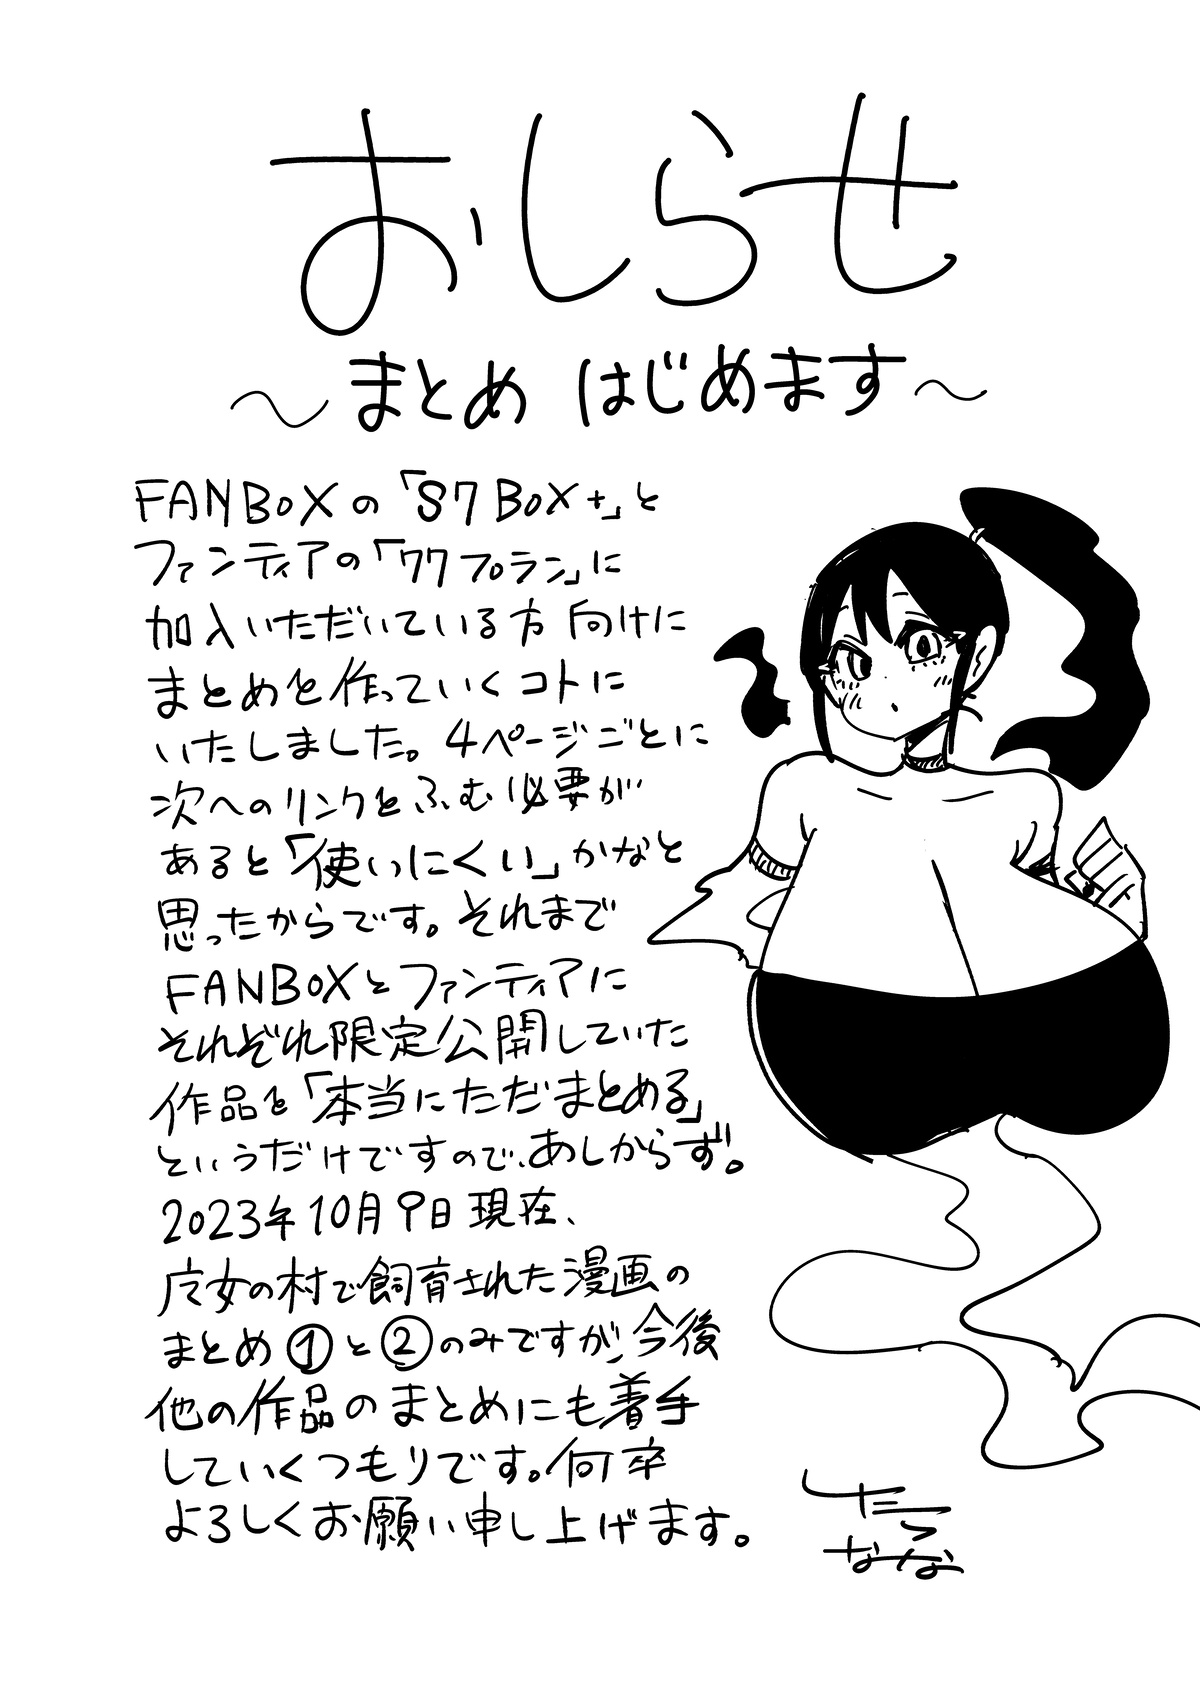 おしらせ
～まとめ はじめます～
FANBOXの「S7BOX+」と
ファンティアの「77プラン」に
加入いただいている方向けに
まとめを作っていくコトに
いたしました。4ページごとに
次へのリンクをふむ必要が
あると「使いにくい」かなと
思ったからです。それまで
FANBOXとファンティアに
それぞれ限定公開していた
作品を「本当にただまとめる」
というだけですので、あしからず。
2023年10月9日現在、
魔女の村で飼育された漫画の
まとめ①と②のみですが、今後
他の作品のまとめにも着手
していくつもりです。何卒
よろしくお願い申し上げます。
したつ
なな